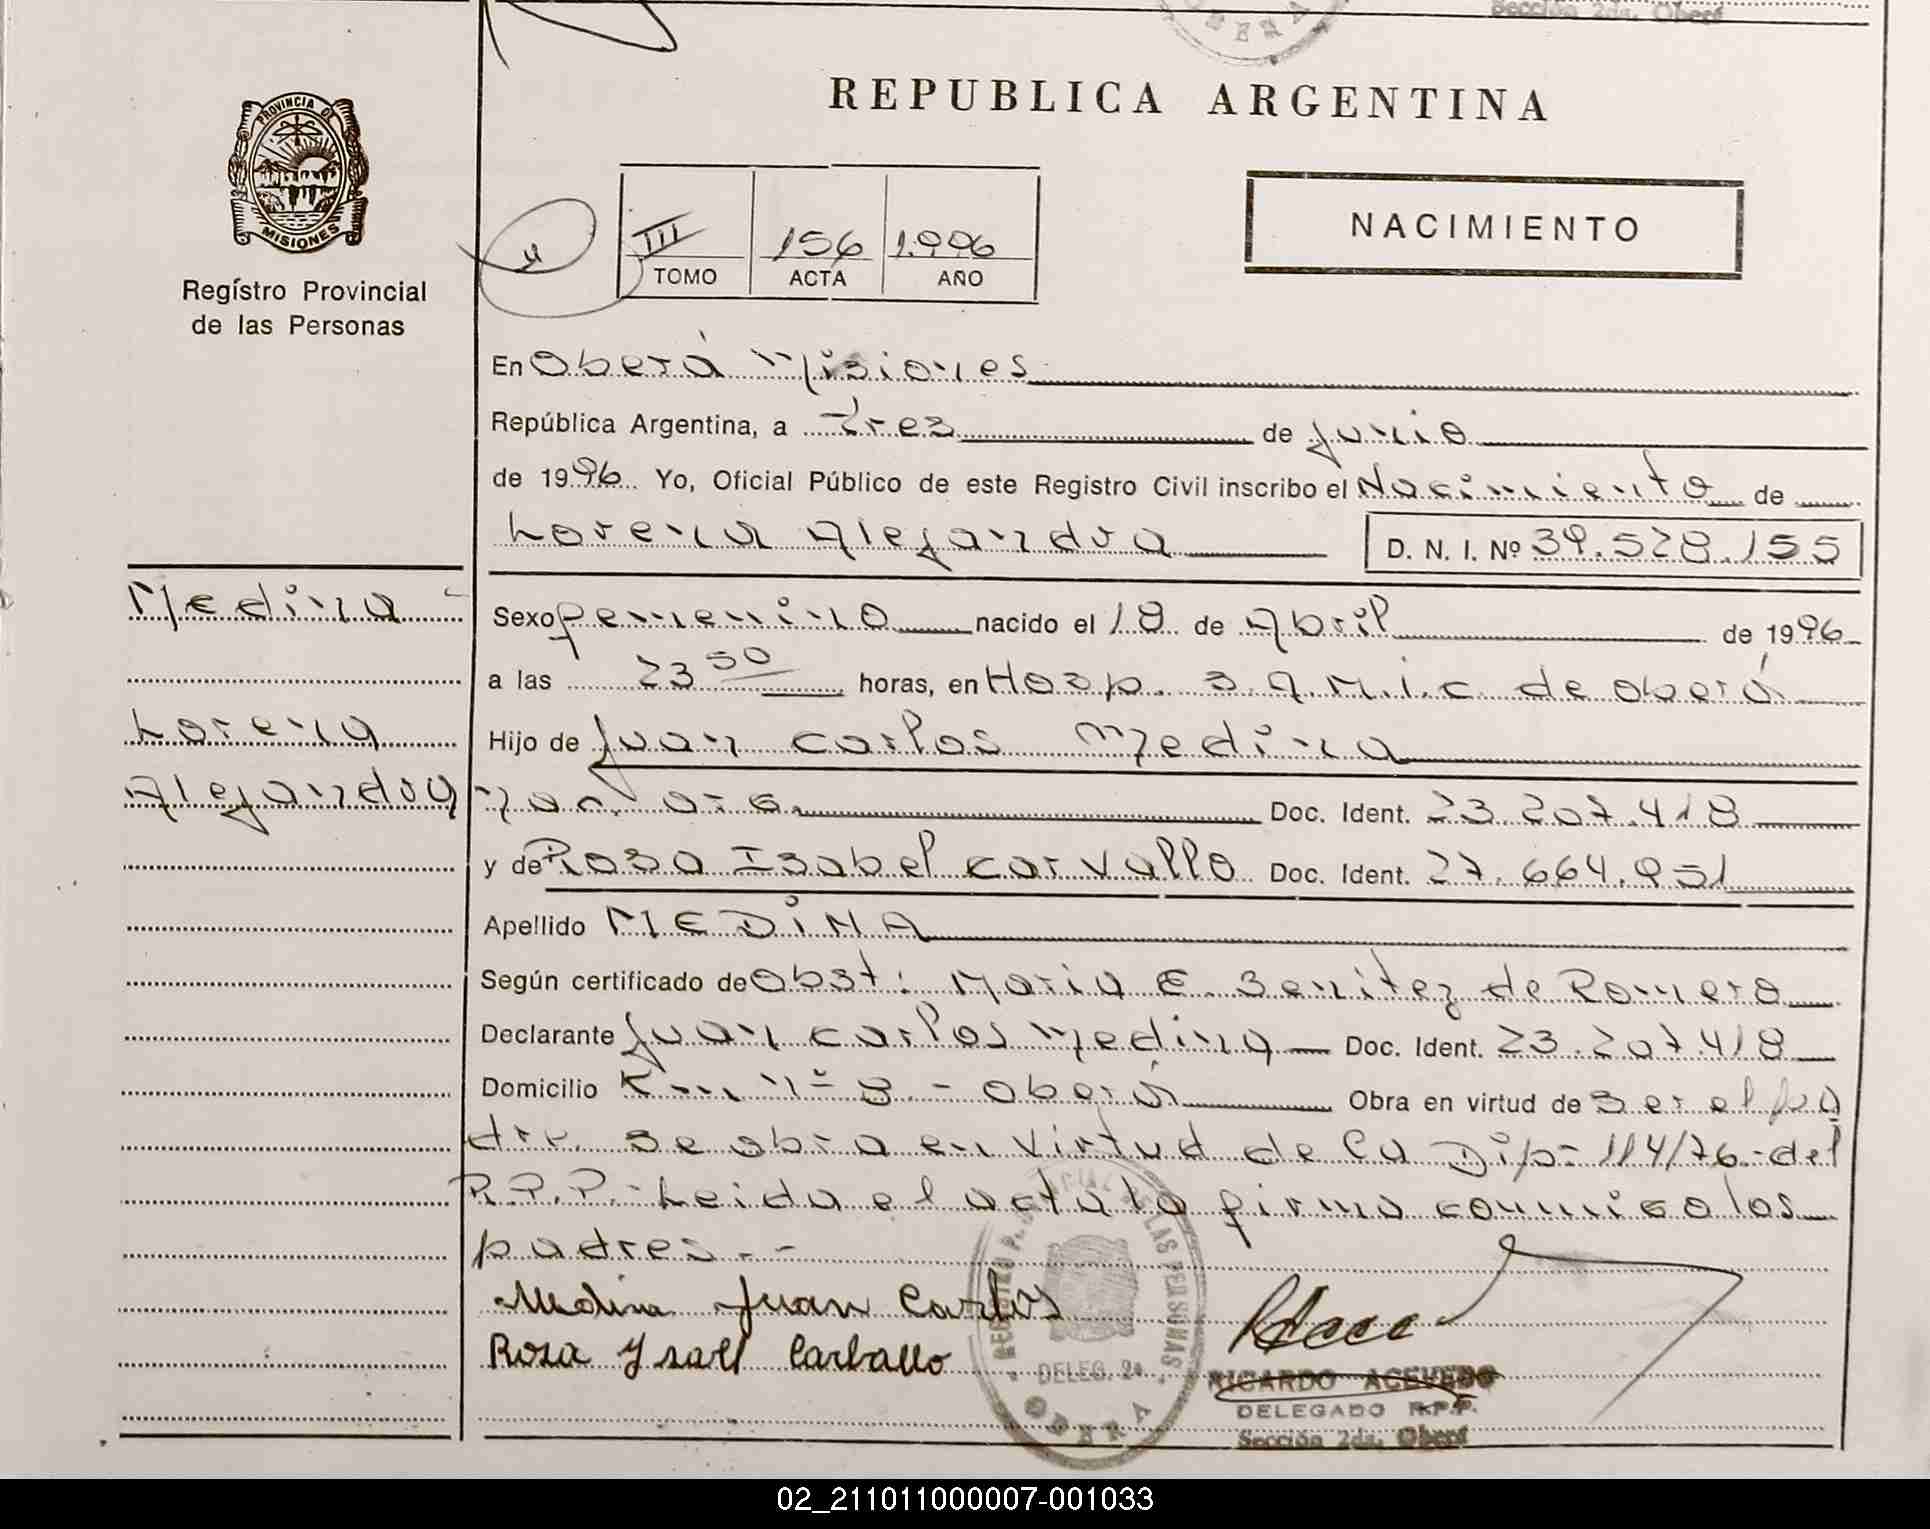 Sección 2da. Oberá
OBERA
REPUBLICA ARGENTINA
PROVINCIA DE
MISIONES
Registro Provincial
de las Personas
NACIMIENTO
III 156 1.996
TOMO ACTA AÑO
En Oberá Misiones
República Argentina, a tres de junio
de 1996 Yo, Oficial Público de este Registro Civil inscribo el Nacimiento de
Lorena Alejandra D. N. I. Nº 39.528.155
Medina
Lorena
Alejandra
Sexo femenino nacido el 18 de Abril de 1996
a las 23 50 horas, en Hosp. S.A.M.i.c. de Oberá
Hijo de Juan Carlos Medina
nac. arg. Doc. Ident. 23.207.418
y de Rosa Isabel Carvallo Doc. Ident. 27.664.951
Apellido MEDiNA
Según certificado de Obst: Maria E. Benitez de Romero
Declarante Juan Carlos Medina Doc. Ident. 23.207.418
Domicilio Km nº 8 - Oberá Obra en virtud de ser el pa
dre. Se obra en virtud de la Dip: 114/76.- del
R.P.P.- Leida el acta la firma conmigo los
padres.-
Medina Juan Carlos
Rosa Ysabel Carballo
REGISTRO PROVINCIAL DE LAS PERSONAS
DELEG. 2a.
OBERA
RICARDO ACEVEDO
DELEGADO R.P.P.
Sección 2da. Oberá
02_211011000007-001033